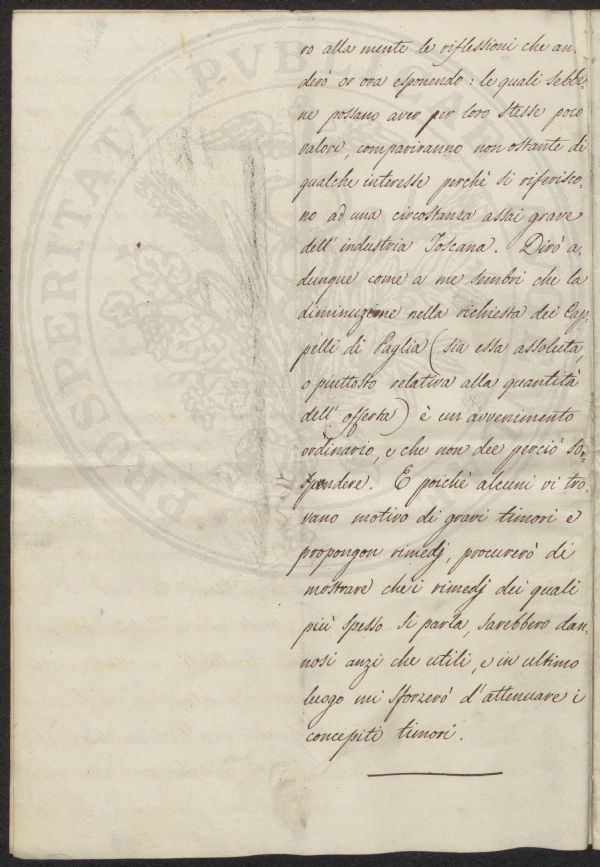 ro alla mente le riflessioni che an-
derò or ora esponendo: le quali sebbe-
ne possano aver per loro stesse poco
valore, compariranno non ostante di
qualche interesse perchè si riferisco-
no ad una circostanza assai grave
dell'industria Toscana. Dirò a-
dunque come a me sembri che la
diminuzione nella richiesta dei Cap-
pelli di Paglia (sia essa assoluta,
o piuttosto relativa alla quantità
dell'offerta) è un avvenimento
ordinario, e che non dee perciò sor-
prendere. E poichè alcuni vi tro-
vano motivo di gravi timori e
propongon rimedj, procurerò di
mostrare che i rimedj dei quali
più spesso si parla, sarebbero dan-
nosi anzi che utili, e in ultimo
luogo mi sforzerò d'attenuare i
concepiti timori.
PROSPERITATI PVBLICAE